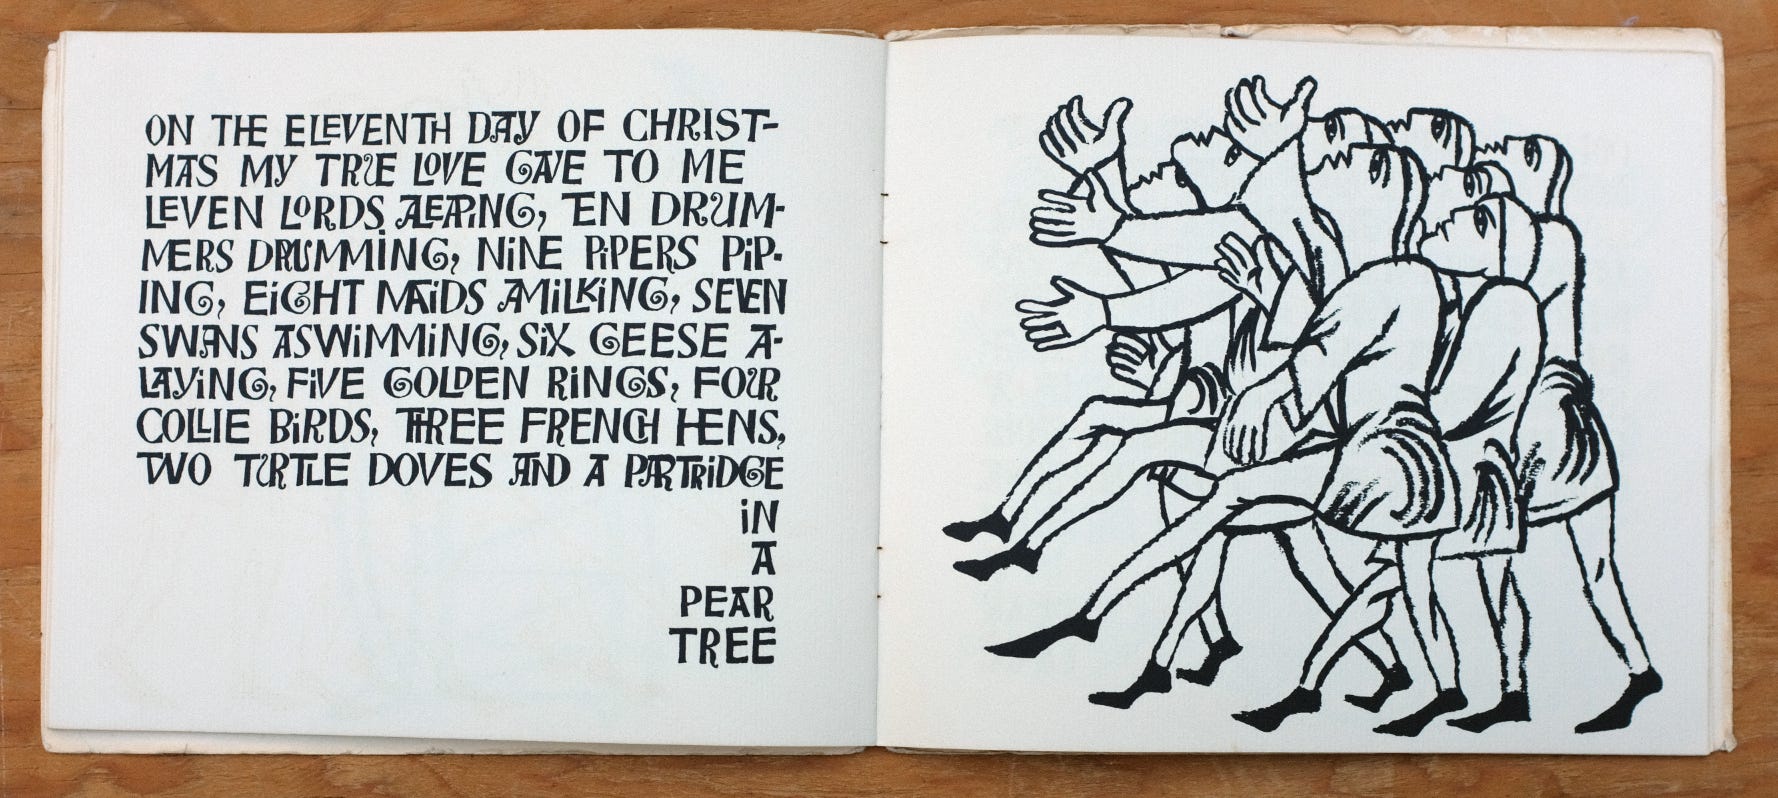 ON THE ELEVENTH DAY OF CHRIST-
MAS MY TRUE LOVE GAVE TO ME
LEVEN LORDS ALEAPING, TEN DRUM-
MERS DRUMMING, NINE PIPERS PIP-
ING, EIGHT MAIDS AMILKING, SEVEN
SWANS ASWIMMING, SIX GEESE A-
LAYING, FIVE GOLDEN RINGS, FOUR
COLLIE BIRDS, THREE FRENCH HENS,
TWO TURTLE DOVES AND A PARTRIDGE
IN
A
PEAR
TREE